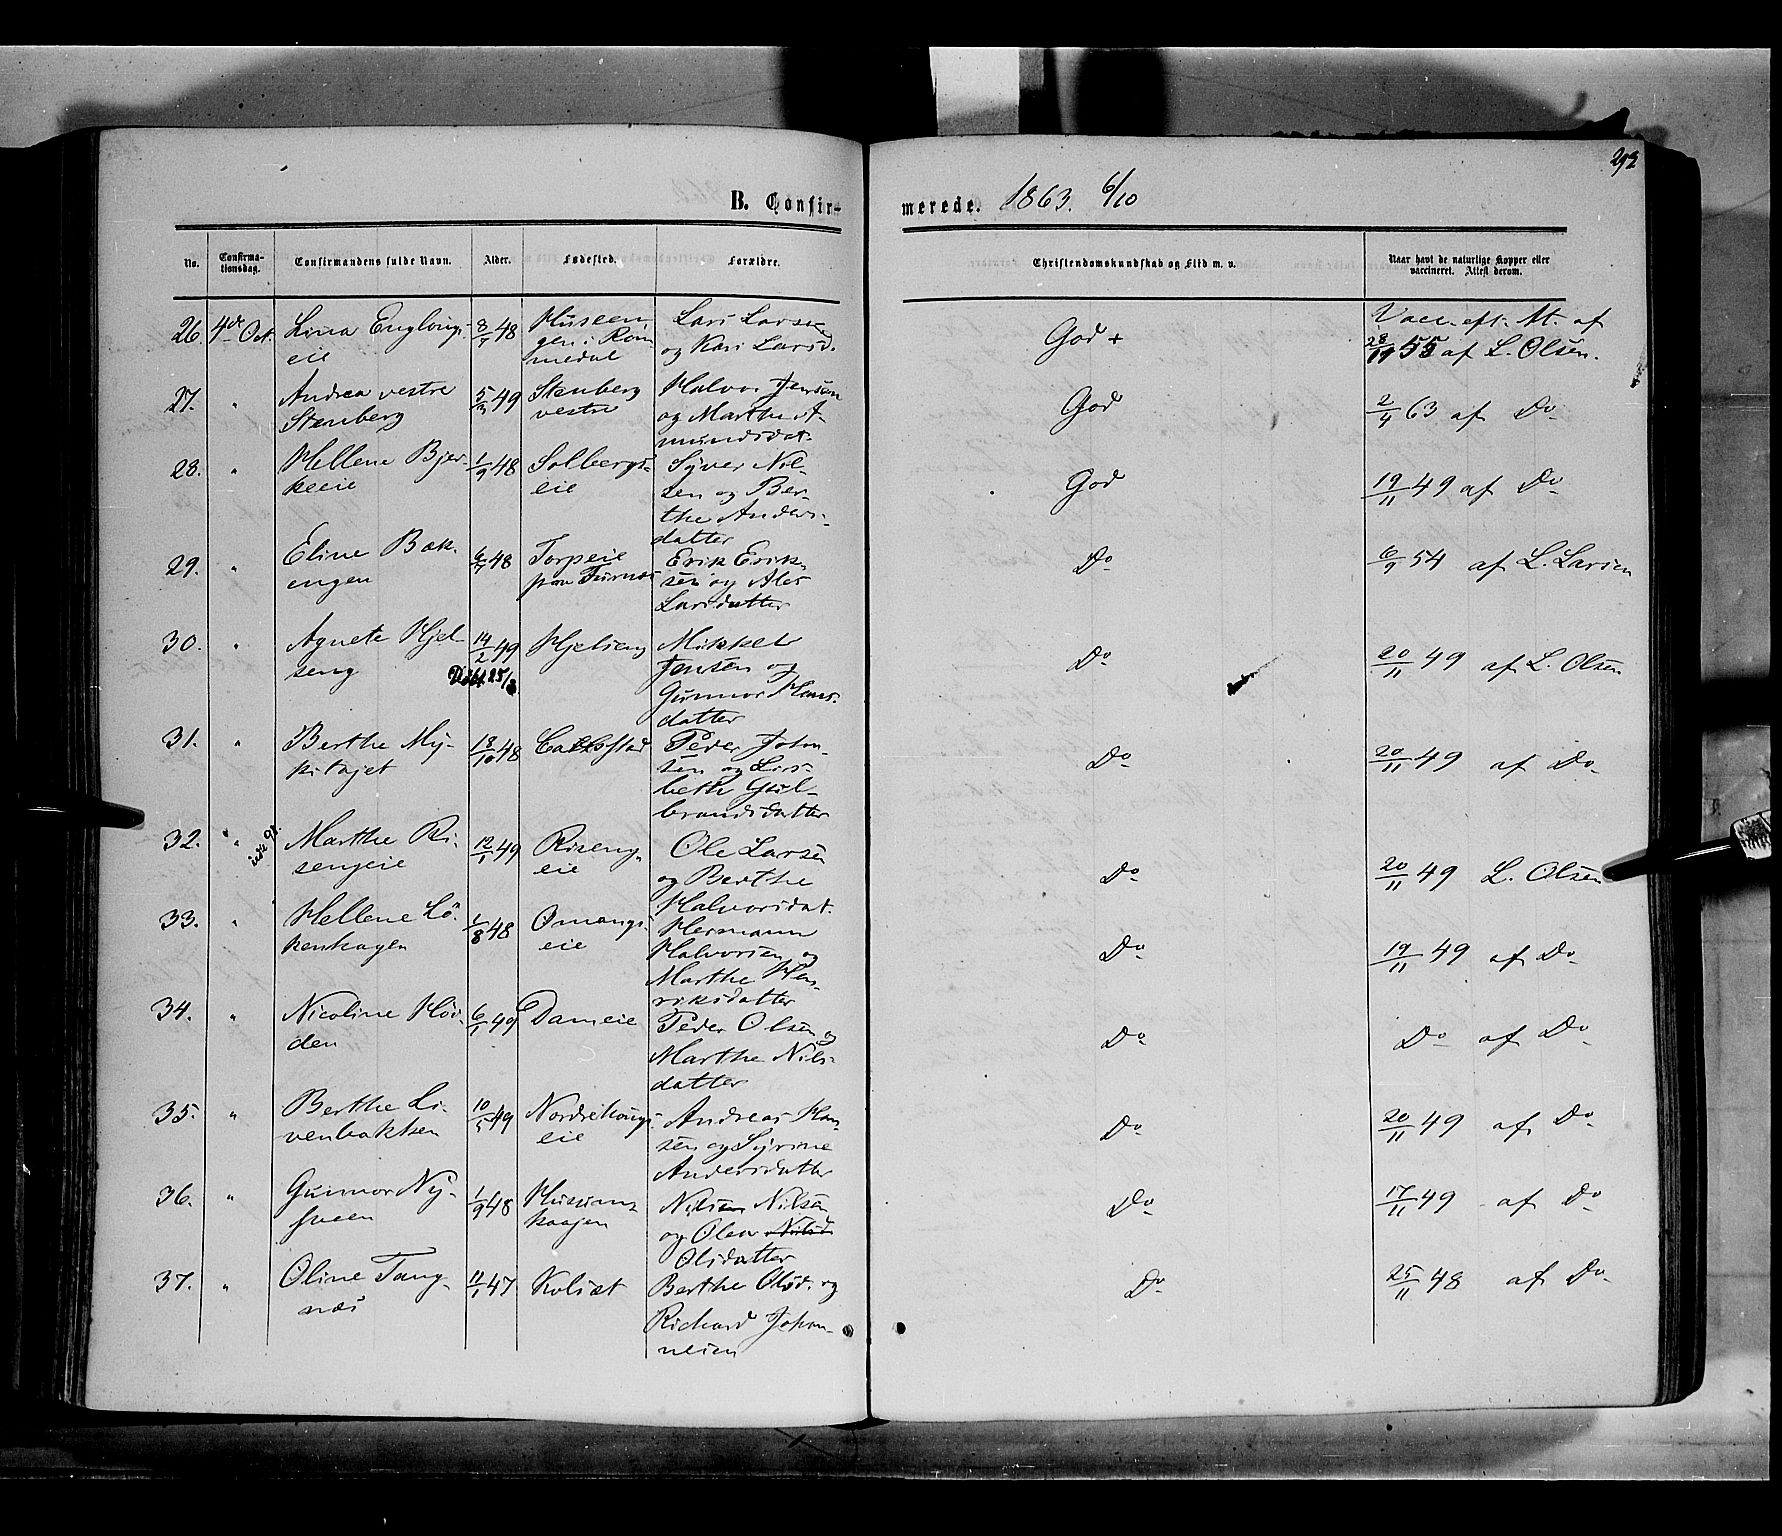 292
B. Confirmerede. 1863. 6/10
No. Confirmationsdag. Confirmandens fulde Navn. Alder. Fødested. Forældre. Christendomskundskab og Flid m. v. Naar havt de naturlige Kopper eller vaccineret. Attest derom.
26. 4de Oct. Lina Englaugs-
eie
8/7 48
Huseen-
gen i Rom
medal
Lars Larsen
og Kari Larsd.
God +
Vacc. eft. At. af
28/11 55 af L. Olsen.
27. "
Andrea vestre
Stenberg
5/3 49
Stenberg
vestre
Halvor Jensen
og Marthe A-
mundsdat.
God
2/4 63 af Do
28. "
Hellene Bjer-
keeie
1/9 48
Solbergs-
eie
Syver Nil-
sen og Ber-
the Anders-
datter
God
19/11 49 af Do
29. "
Eline Bæk-
engen
6/7 48
Torpeie
paa Furnæs
Erik Erik-
sen og Ales
Larsdatter
Do
6/9 54 af L. Larsen
30. "
Agnete Hjel-
seng
14/2 49
Døbt 25/3
Hjelseng
Mikkel
Jensen og
Gunnor Hans-
datter
Do
20/11 49 af L. Olsen
31. "
Berthe My-
kitajet
18/10 48
Peder John-
sen og Lis-
beth Gul-
brandsdatter
Do
20/11 49 af Do
32. "
Marthe Ri-
sengeie
12/1 49
Riseng-
eie
Ole Larsen
og Berthe
Halvorsdat.
Do
20/11 49 L. Olsen
33. "
Hellene Lö-
kenhagen
1/8 48
Omangs-
eie
Hermann
Halvorsen og
Marthe Hen-
riksdatter
Do
19/11 49 af Do
34. "
Nicoline Höi-
den
6/1 49
Dameie
Peder Olsen og
Marthe Nils-
datter
Do
Do af Do
35. "
Berthe Li-
venbakken
10/5 49
Nordrehougs-
eie
Andreas Han-
sen og Syrine
Andersdatter
Do
20/11 49 af Do
36. "
Gunnor Ny-
sveen
1/9 48
Husum-
haajen
Nilsen Nilsen
og Olea Nilsd
Olsdatter
Do
17/11 49 af Do
37. "
Oline Tang-
næs
11/1 47
Kolset
Berthe Olsd. og
Richard Johan-
nesen
Do
25/11 48 af Do